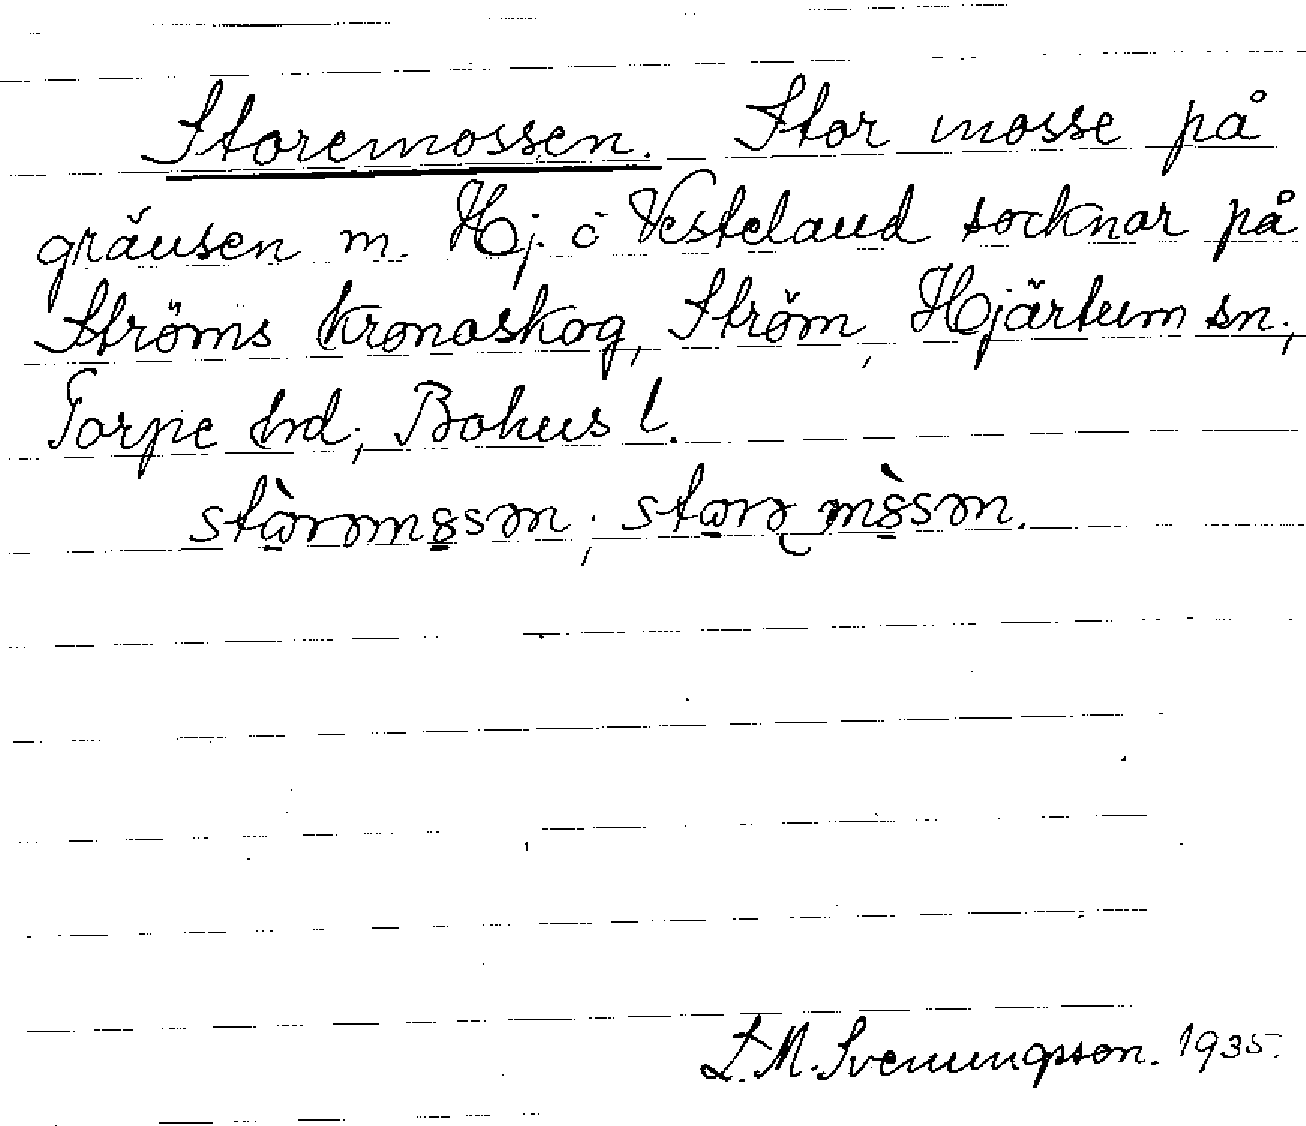 Storemossen. Stor mosse på
gränsen m. Hj. o Vesteland socknar på
Ströms kronoskog, Ström, Hjärtum sn.,
Torpe hrd., Bohus l.
L. M. Svenungsson. 1935.